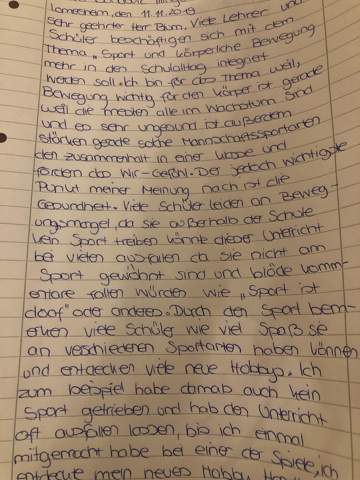 Lomersheim, den 11.11.2019
Sehr geehrter Herr Blum, Viele Lehrer und
Schüler beschäftigen sich mit dem
Thema „Sport und körperliche Bewegung
mehr in den Schulalltag integriert
werden soll. Ich bin für das Thema weil,
Bewegung wichtig für den Körper ist gerade
weil die meisten alle im Wachstum sind
und es sehr ungesund ist außerdem
stärken gerade solche Mannschaftssportarten
den zusammenhalt in einer Gruppe und
fördern das Wir-Gefühl. Der jedoch wichtigste
Punkt meiner Meinung nach ist die
Gesundheit. Viele Schüler leiden an Beweg-
ungsmangel, da sie außerhalb der Schule
kein Sport treiben könnte dieser Unterricht
bei vielen ausfallen da sie nicht am
Sport gewöhnt sind und blöde komm-
entare fallen würden wie „Sport ist
doof" oder anderes. Durch den Sport bem-
erken viele Schüler wie viel Spaß se
an verschiedenen Sportarten haben können
und entdecken viele neue Hobbys. Ich
zum beispiel habe damals auch kein
Sport getrieben und hab den Unterricht
oft ausfallen lassen, bis ich einmal
mitgemacht habe bei einer der Spiele, ich
entdeckte mein neues Hobby